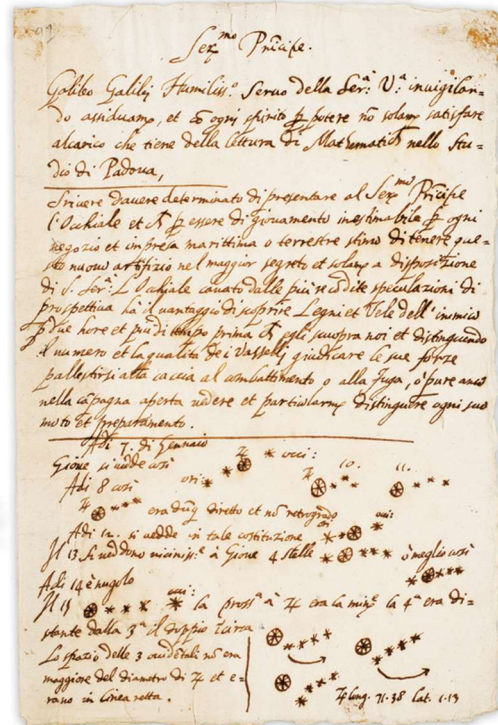 Ser.mo Prīcipe.
Galileo Galilej Humiliss.o Seruo della Ser.a V.a inuigilan-
do assiduamᵉ, et cō ogni spirito ꝑ potere nō solamᵉ satisfare
alcarico che tiene della lettura di Mathematicħ nello Stu-
dio di Padoua,
Scriuere dauere determinato di presentare al Ser.mo Prīcipe
l'Occhiale et ꝑ essere di giouamento inestimabile ꝑ ogni
negozio et impresa marittima o terrestre stimo di tenere que-
sto nuouo artifizio nel maggior segreto et solamᵉ a disposizione
di S. Ser.a L'Occhiale cauato dalle più recōdite speculazioni di
prospettiua ha il uantaggio di scoprire Legni et Vele dell'inimico
ꝑ due hore et più di tempo prima cħ egli scuopra noi et distinguendo
il numero et la qualità de i Vasselli giudicare le sue forze
pallestirsi alla caccia al combattimento o alla fuga, o pure anco
nella cāpagna aperta uedere et particolarmᵉ distinguere ogni suo
moto et preparamento.
Adi 7. di Gennaio
Gioue si uedde così ♃ * occi:
Adi 8 così ori: ♃ 10. 11.
♃ era dūq diretto et nō retrogrado
Adi 12. si uedde in tale costituzione ori occi:
Il 13 si ueddono uiciniss.e à Gioue 4 stelle ò meglio così
Adi 14 è nugolo
Il 15 occi: la pross.a à ♃ era la min.e la 4.a era di-
stante dalla 3.a il doppio Ĩcirca
Lo spazio delle 3 occidētali nō era
maggiore del diametro di ♃ et e-
rano in linea retta.
♃ long. 71.38 Lat. 1.13